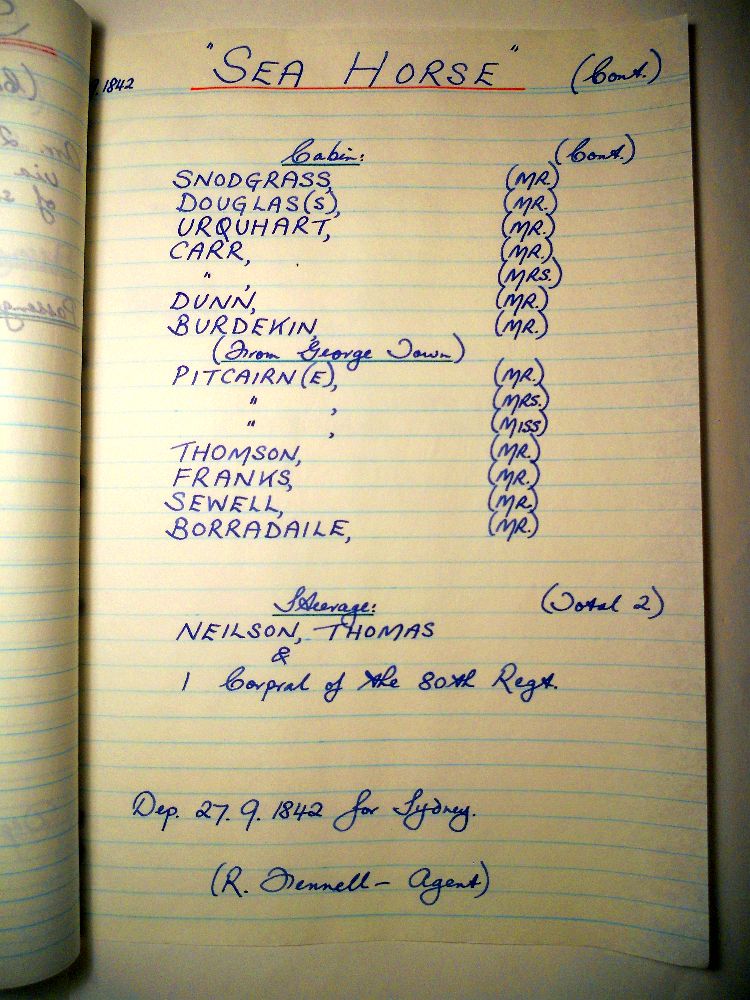 "SEA HORSE" (Cont.)
9. 1842
Cabin: (Cont.)
SNODGRASS, (MR.)
DOUGLAS(S), (MR.)
URQUHART, (MR.)
CARR, (MR.)
" , (MRS.)
DUNN, (MR.)
BURDEKIN, (MR.)
(From George Town)
PITCAIRN(E), (MR.)
" , (MRS.)
" , (MISS)
THOMSON, (MR.)
FRANKS, (MR.)
SEWELL, (MR.)
BORRADAILE, (MR.)
Steerage: (Total 2)
NEILSON, THOMAS
&
1 Corpral of the 80th Regt.
Dep. 27. 9. 1842 for Sydney.
(R. Fennell - Agent)